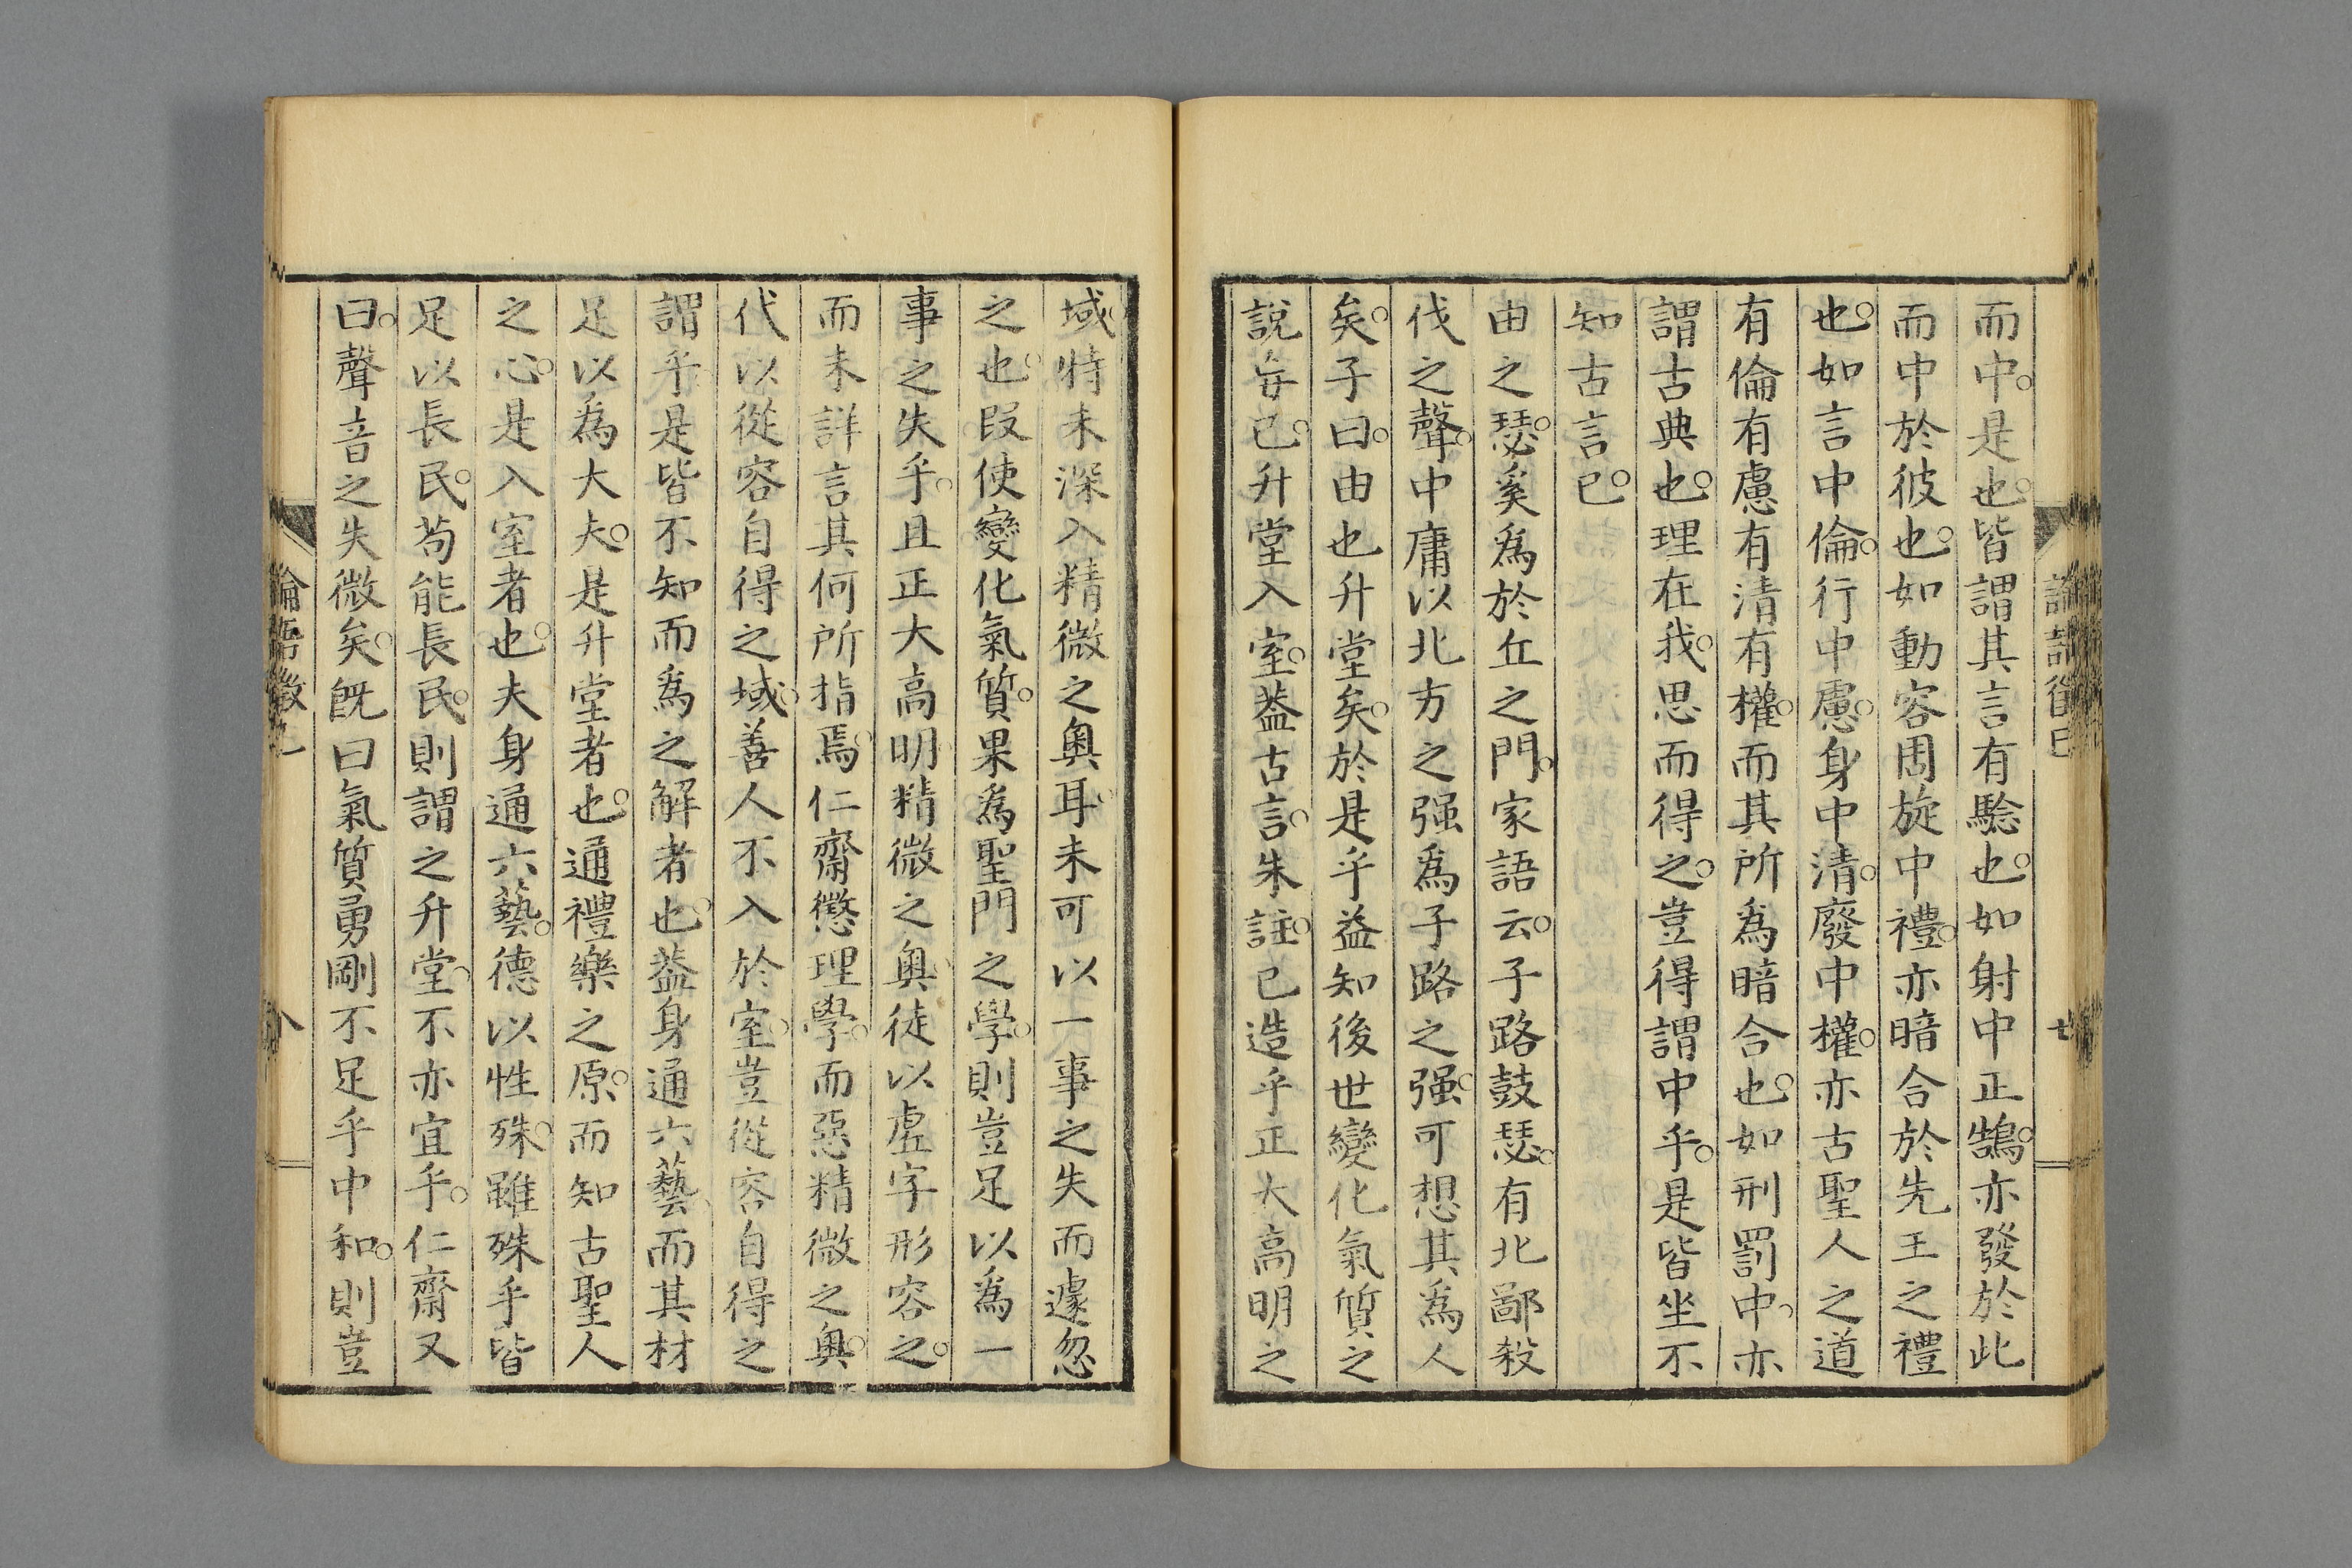 論語徵巳
七
而中。是也。皆謂其言有驗也。如射中正鵠。亦發於此
而中於彼也。如動容周旋中禮。亦暗合於先王之禮
也。如言中倫。行中慮。身中清。廢中權。亦古聖人之道
有倫有慮有清有權。而其所爲暗合也。如刑罰中。亦
謂古典也。理在我。思而得之。豈得謂中乎。是皆坐不
知古言已。
由之瑟。奚爲於丘之門。家語云。子路鼓瑟。有北鄙殺
伐之聲。中庸以北方之强爲子路之强。可想其爲人
矣。子曰。由也升堂矣。於是乎益知後世變化氣質之
說妄已。升堂入室。葢古言。朱註。已造乎正大高明之
域。特未深入精微之奧耳。未可以一事之失而遽忽
之也。叚使變化氣質。果爲聖門之學。則豈足以爲一
事之失乎。且正大高明精微之奧。徒以虛字形容之。
而未詳言其何所指焉。仁齋懲理學。而惡精微之奧。
代以從容自得之域。善人不入於室。豈從容自得之
謂乎。是皆不知而爲之解者也。葢身通六藝。而其材
足以爲大夫。是升堂者也。通禮樂之原。而知古聖人
之心。是入室者也。夫身通六藝。德以性殊。雖殊乎皆
足以長民。苟能長民。則謂之升堂。不亦宜乎。仁齋又
曰。聲音之失微矣。旣曰氣質勇剛不足乎中和。則豈
論語徵巳
八